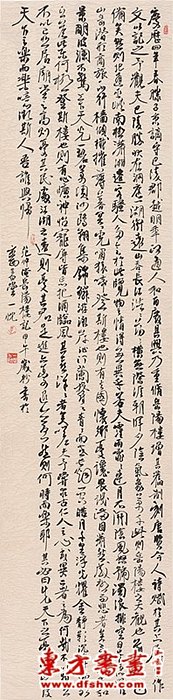 慶曆四年春滕子京謫守巴陵郡越明年政通人和百廢具興乃重修岳陽樓增其舊制刻唐賢今人詩賦於其上屬予作
文以記之予觀夫巴陵勝狀在洞庭一湖銜遠山吞長江浩浩湯湯橫無際涯朝暉夕陰氣象萬千此則岳陽樓之大觀也前人之述
備矣然則北通巫峽南極瀟湘遷客騷人多會於此覽物之情得無異乎若夫霪雨霏霏連月不開陰風怒號濁浪排空日星隱曜
山岳潛形商旅不行檣傾楫摧薄暮冥冥虎嘯猿啼登斯樓也則有去國懷鄉憂讒畏譏滿目蕭然感極而悲者矣至若春和
景明波瀾不驚上下天光一碧萬頃沙鷗翔集錦鱗游泳岸芷汀蘭郁郁青青而或長煙一空皓月千里浮光躍金靜影沉璧漁歌互答
此樂何極登斯樓也則有心曠神怡寵辱偕忘把酒臨風其喜洋洋者矣嗟夫予嘗求古仁人之心或異二者之為何哉不以物喜不
以己悲居廟堂之高則憂其民處江湖之遠則憂其君是進亦憂退亦憂然則何時而樂耶其必曰先天下之憂而憂後
天下之樂而樂歟噫微斯人吾誰與歸
范仲淹岳陽樓記
www.dfshw.com